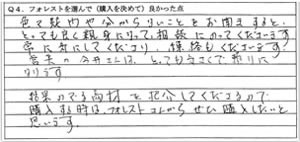 Q4. フォレストを選んで(購入を決めて)良かった点
色々疑問や分からないことをお聞きすると、
とっても良く親身になって相談にのってくださいます
常に気にしてくださり、連絡もくださいます
営業の 井さんは、とっても気さくで頼りに
なります。
結果のでる商材を紹介してくださるので
購入する時は、フォレストさんからぜひ購入したいと
思います。